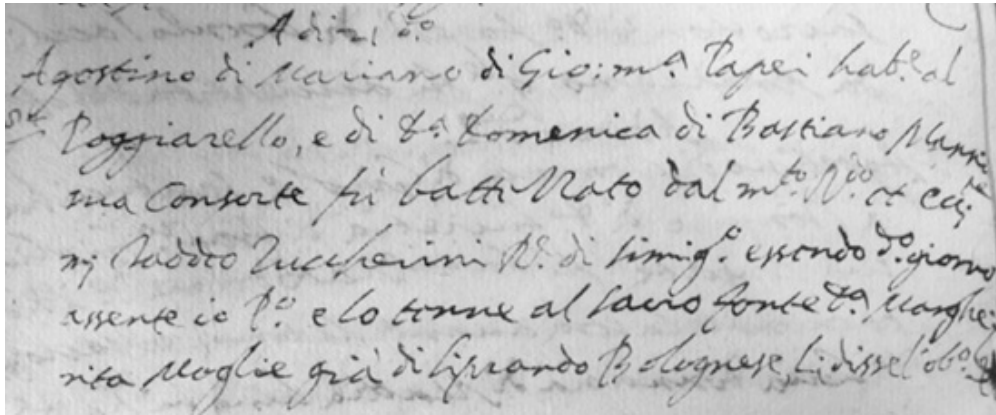 A di d.º
Agostino di Mariano di Gio: m.ª Papei hab.e al
Poggiarello, e di d.ª Domenica di Bastiano
sua Consorte fù battizzato dal m.to R.do et
Taddeo Zuccherini R.e di essendo d.º giorno
assente io R.e e lo tenne al sacro fonte d.ª Marghe
rita Moglie già di Liprando Bolognese, li disse l'ob.º